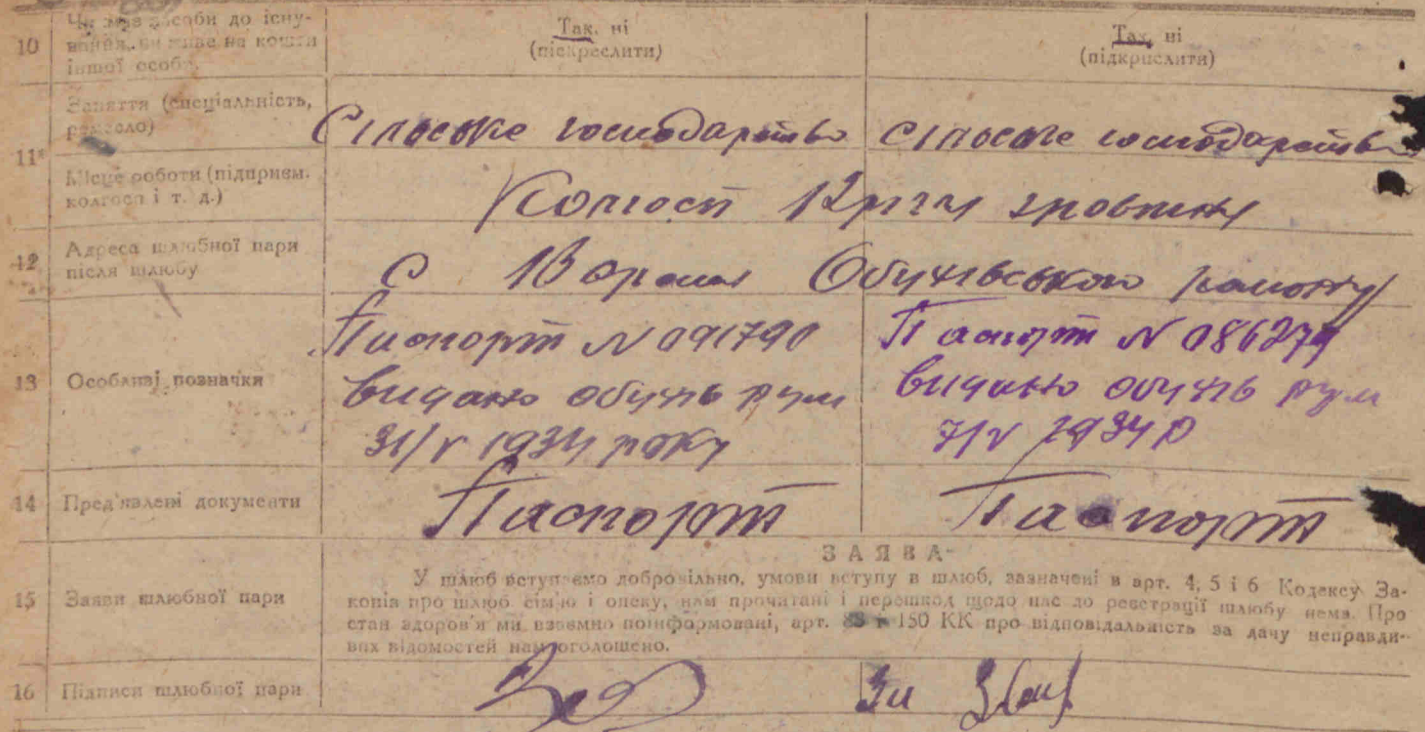 10 Чи має засоби до існування, чи живе на кошти іншої особи. Так, ні (підкреслити) Так, ні (підкреслити)
11 Заняття (спеціальність, ремесло) Сільске господарство сільске господарство
Місце роботи (підприєм. колгосп і т. д.) Колгосп
12 Адреса шлюбної пари після шлюбу С Обухівського району
13 Особливі позначки
Паспорт N 091790 Паспорт N 086279
видано обухів рум видано обухів рум
31/V 1934 року 7/V 1934 р
14 Пред'явлені документи Паспорт Паспорт
ЗАЯВА
15 Заяви шлюбної пари
У шлюб вступаємо добровільно, умови вступу в шлюб, зазначені в арт. 4, 5 і 6 Кодексу За-
конів про шлюб сім'ю і опеку, нам прочитані і перешкод щодо нас до реєстрації шлюбу нема. Про
стан здоров'я ми взаємно поінформовані, арт. 150 КК про відповідальність за дачу неправди-
вих відомостей нам оголошено.
16 Підписи шлюбної пари